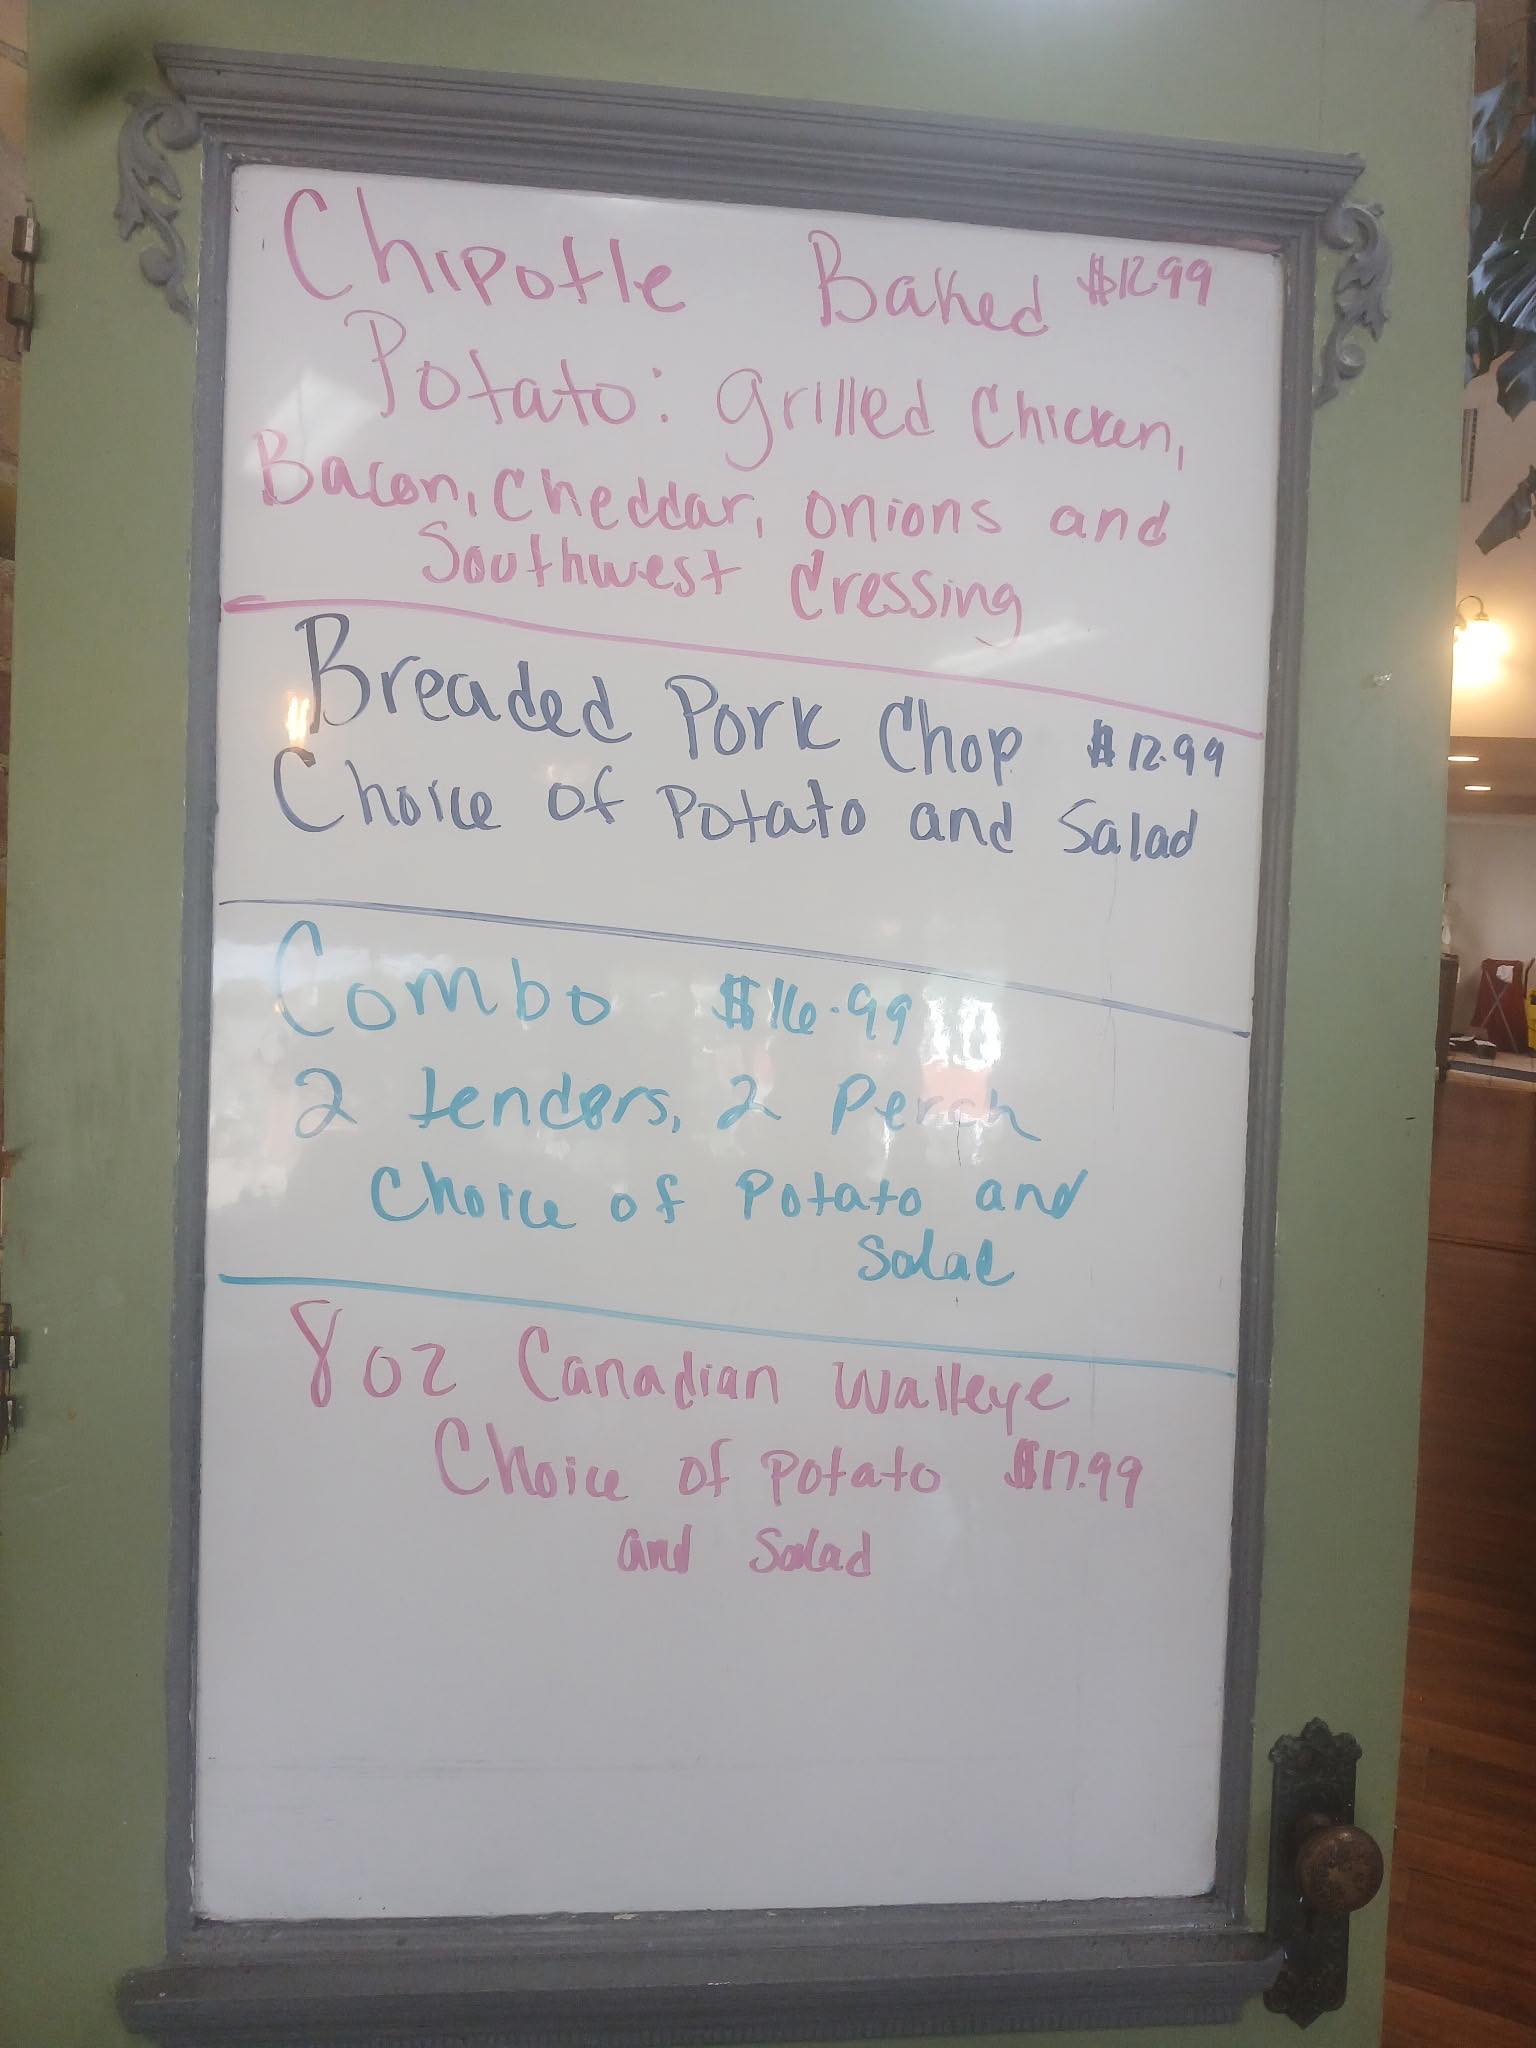 Chipotle Baked $12.99
Potato: grilled Chicken,
Bacon, Cheddar, onions and
Southwest dressing
Breaded Pork Chop $12.99
Choice of Potato and Salad
Combo $16.99
2 tenders, 2 Perch
Choice of Potato and
Salad
8 oz Canadian Walleye
Choice of Potato $17.99
and Salad